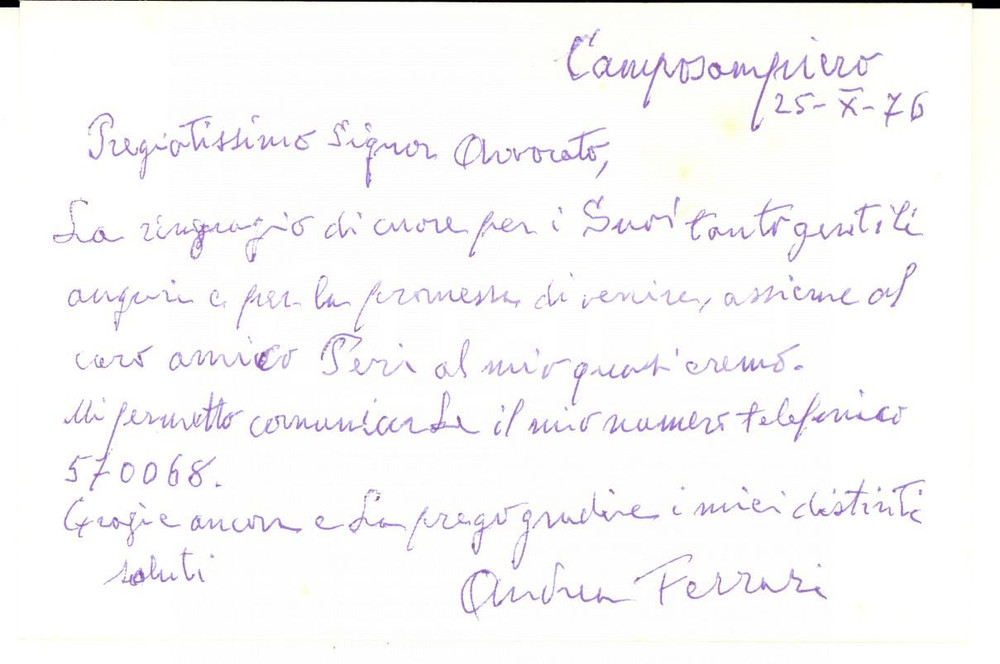 Camposampiero
25-X-76
Pregiatissimo Signor Avvocato,
La ringrazio di cuore per i Suoi tanto gentili
auguri e per la promessa di venire, assieme al
caro amico Peri al mio quasi eremo.
Mi permetto comunicarLe il mio numero telefonico
570068.
Grazie ancora e La prego gradire i miei distinti
saluti
Andrea Ferrari